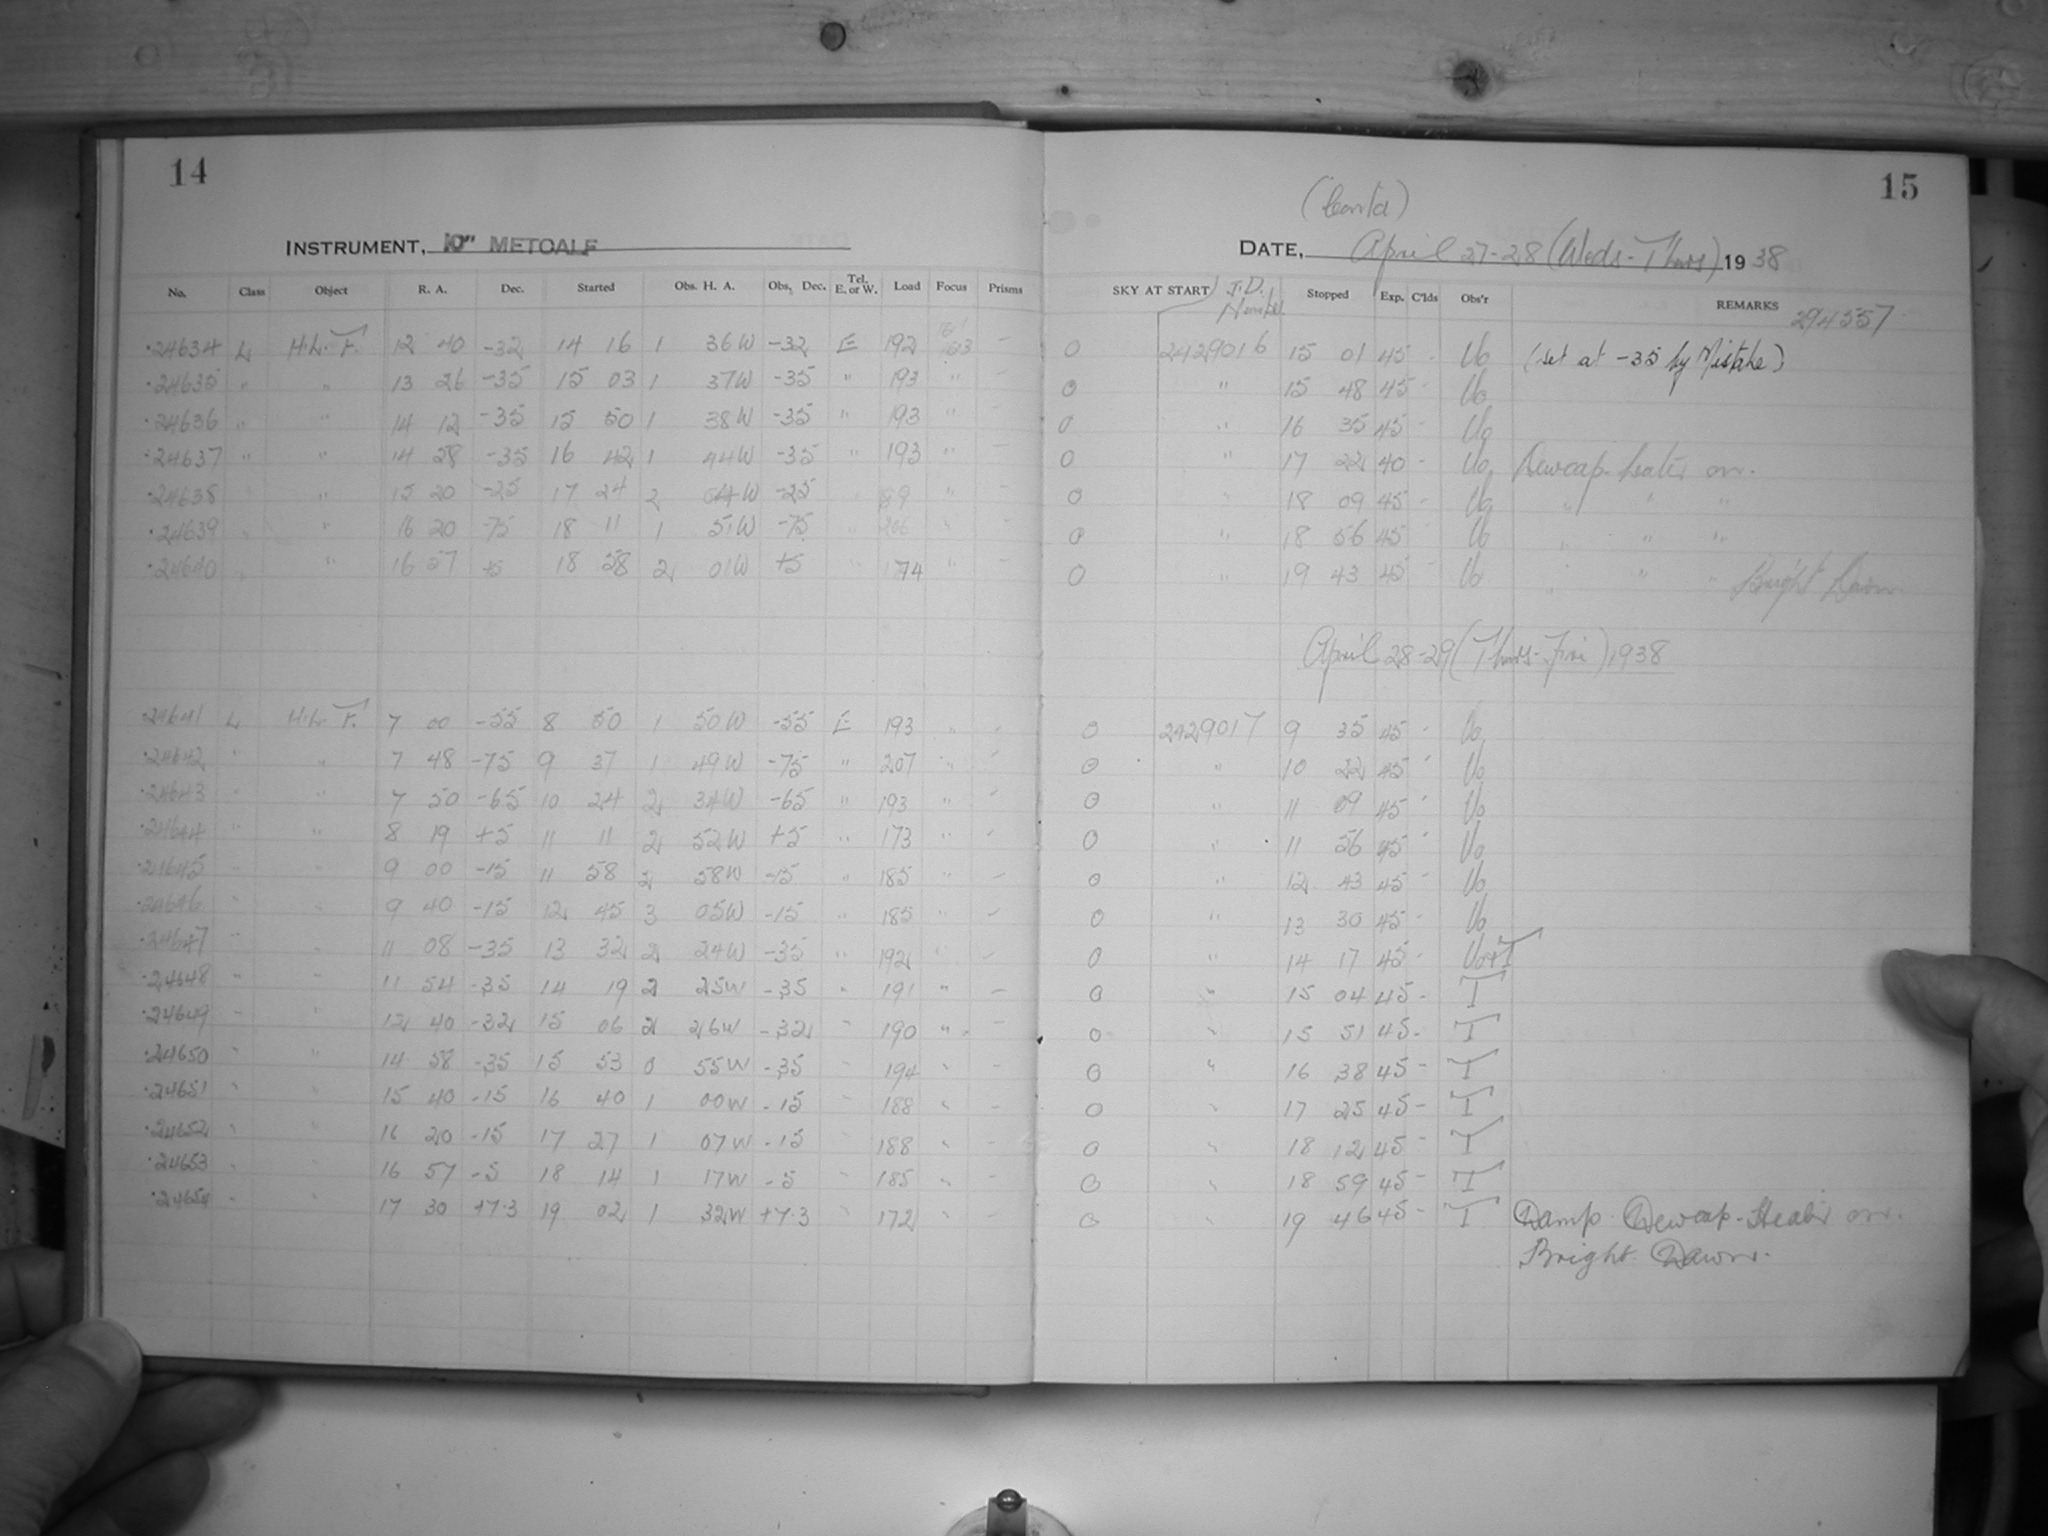 14
INSTRUMENT, 10" METCALF
No. Class Object R. A. Dec. Started Obs. H. A. Obs. Dec. Tel. E. or W. Load Focus Prisms
24634 L H.L. F. 12 40 -32 14 16 1 36W -32 E 192 613 -
24635 " " 13 26 -35 15 03 1 37W -35 " 193 " -
24636 " " 14 12 -35 15 50 1 38W -35 " 193 " -
24637 " " 14 28 -35 16 42 1 44W -35 " 193 " -
24638 " " 15 20 -25 17 24 2 04W -25 " 89 " -
24639 " " 16 20 -75 18 11 1 51W -75 " 206 " -
24640 " " 16 57 +5 18 58 2 01W +5 " 174 " -
24641 L H.L. F. 7 00 -55 8 50 1 50W -55 E 193 " -
24642 " " 7 48 -75 9 37 1 49W -75 " 207 " -
24643 " " 7 50 -65 10 24 2 34W -65 " 193 " -
24644 " " 8 19 +5 11 11 2 52W +5 " 173 " -
24645 " " 9 00 -15 11 58 2 58W -15 " 185 " -
24646 " " 9 40 -15 12 45 3 05W -15 " 185 " -
24647 " " 11 08 -35 13 32 2 24W -35 " 192 " -
24648 " " 11 54 -35 14 19 2 25W -35 " 191 " -
24649 " " 12 40 -32 15 06 2 26W -32 " 190 " -
24650 " " 14 58 -35 15 53 0 55W -35 " 194 " -
24651 " " 15 40 -15 16 40 1 00W -15 " 188 " -
24652 " " 16 20 -15 17 27 1 07W -15 " 188 " -
24653 " " 16 57 -5 18 14 1 17W -5 " 185 " -
24654 " " 17 30 +7.3 19 02 1 32W +7.3 " 172 " -
15
(Cont'd)
DATE, April 27-28 (Weds-Thurs) 1938
SKY AT START J.D. Number Stopped Exp. C'lds Obs'r REMARKS 294557
0 2429016 15 01 45 - Uo (set at -35 by Mistake)
0 " 15 48 45 - Uo
0 " 16 35 45 - Uo
0 " 17 22 40 - Uo Dewcap heater on.
0 " 18 09 45 - Uo " " "
0 " 18 56 45 - Uo " " "
0 " 19 43 45 - Uo " " " Bright Dawn.
April 28-29 (Thurs-Fri) 1938
0 2429017 9 35 45 - Uo
0 " 10 22 45 - Uo
0 " 11 09 45 - Uo
0 " 11 56 45 - Uo
0 " 12 43 45 - Uo
0 " 13 30 45 - Uo
0 " 14 17 45 - Uo+T
0 " 15 04 45 - T
0 " 15 51 45 - T
0 " 16 38 45 - T
0 " 17 25 45 - T
0 " 18 12 45 - T
0 " 18 59 45 - T
0 " 19 46 45 - T Damp. Dewcap-Heater on.
Bright Dawn.